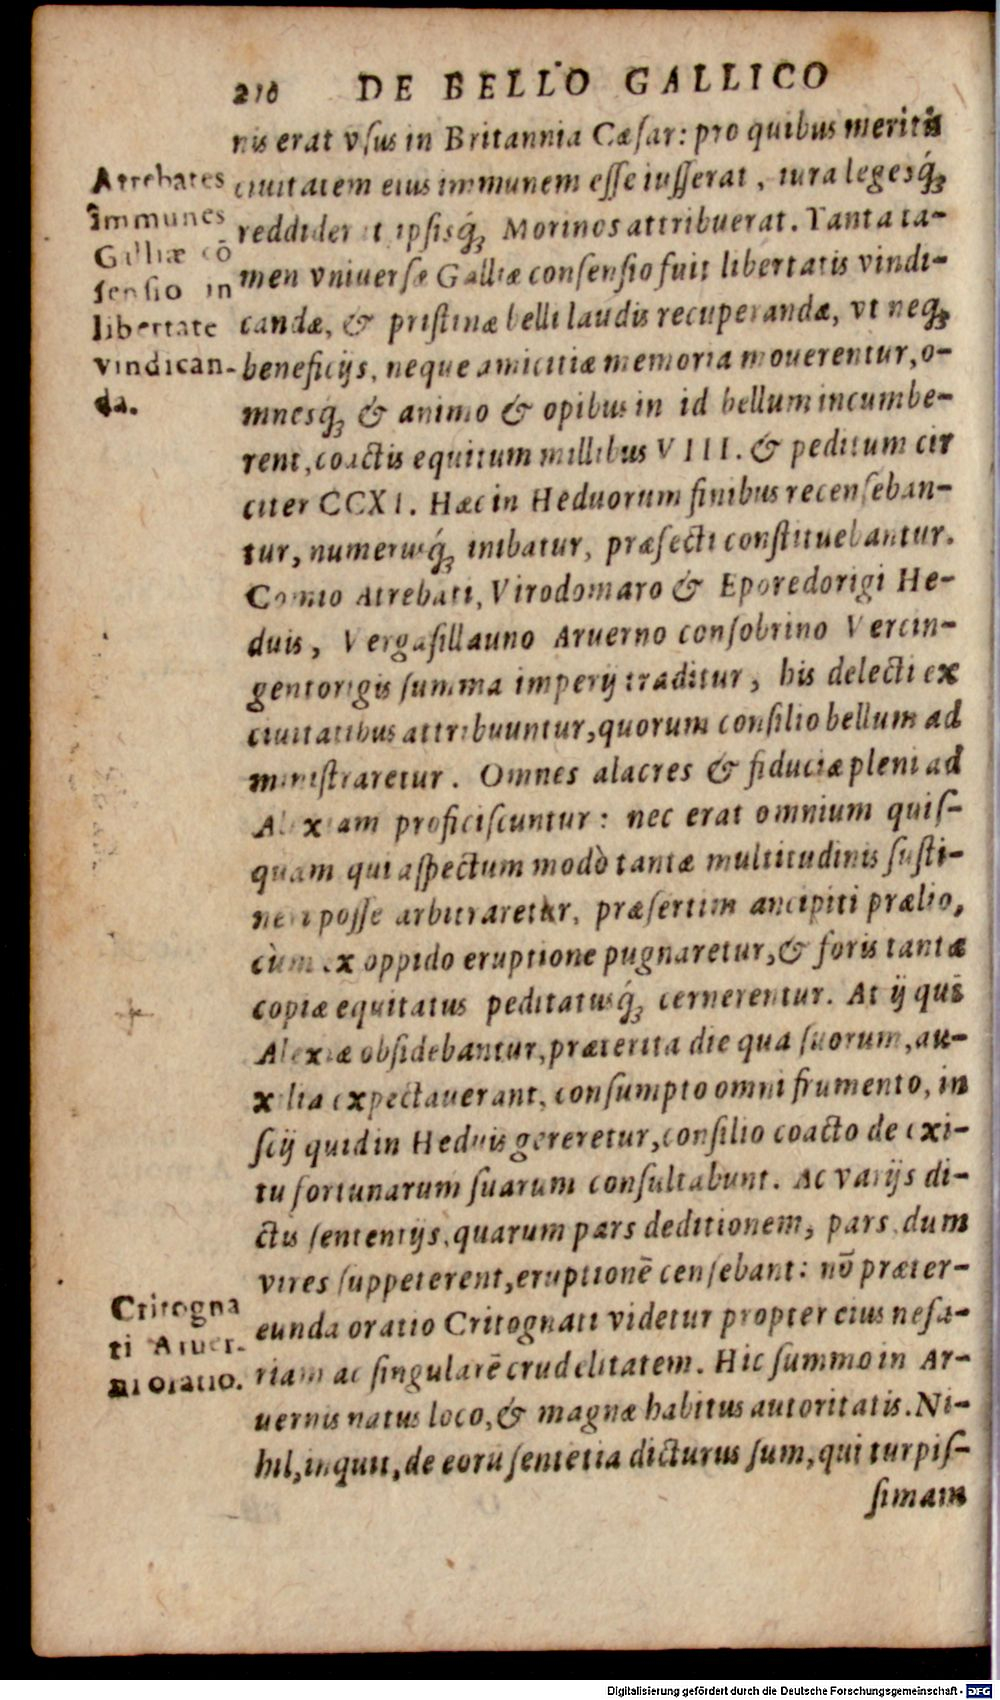 210 DE BELLO GALLICO
nis erat vſus in Britannia Cæſar: pro quibus meritis
ciuitatem eius immunem eſſe iuſſerat, iura legesq́;
reddiderat ipſisq́; Morinos attribuerat. Tanta ta-
men vniuerſæ Galliæ conſenſio fuit libertatis vindi-
candæ, & priſtinæ belli laudis recuperandæ, vt neq;
beneficijs, neque amicitiæ memoria mouerentur, o-
mnesq́; & animo & opibus in id bellum incumbe-
rent, coactis equitum millibus VIII. & peditum cir
citer CCXL. Hæc in Heduorum finibus recenſeban-
tur, numerusq́; inibatur, præfecti conſtituebantur.
Comio Atrebati, Virodomaro & Eporedorigi He-
duis, Vergaſillauno Aruerno conſobrino Vercin-
gentorigis ſumma imperij traditur, his delecti ex
ciuitatibus attribuuntur, quorum conſilio bellum ad
miniſtraretur. Omnes alacres & fiduciæ pleni ad
Alexiam proficiſcuntur: nec erat omnium quiſ-
quam qui aſpectum modò tantæ multitudinis ſuſti-
neri poſſe arbitraretur, præſertim ancipiti prælio,
cùm ex oppido eruptione pugnaretur, & foris tantæ
copiæ equitatus peditatusq́; cernerentur. At ij qui
Alexiæ obſidebantur, præterita die qua ſuorum, au-
xilia expectauerant, conſumpto omni frumento, in
ſcij quid in Heduis gereretur, conſilio coacto de exi-
tu fortunarum ſuarum conſultabunt. Ac varijs di-
ctis ſententijs, quarum pars deditionem, pars dum
vires ſuppeterent, eruptionē cenſebant: nō præter-
eunda oratio Critognati videtur propter eius nefa-
riam ac ſingularē crudelitatem. Hic ſummo in Ar-
uernis natus loco, & magnæ habitus autoritatis. Ni-
hil, inquit, de eorū ſentētia dicturus ſum, qui turpiſ-
ſimam
Atrebates
immunes
Galliæ cō
ſenſio in
libertate
vindican-
da.
Critogna
ti Aruer-
ni oratio.
Digitalisierung gefördert durch die Deutsche Forschungsgemeinschaft - DFG